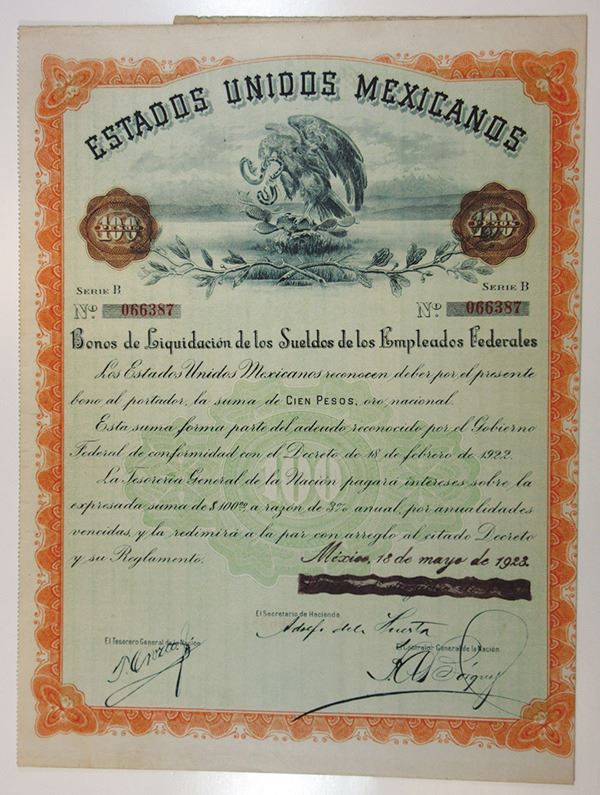 ESTADOS UNIDOS MEXICANOS
100 PESOS
100 PESOS
SERIE B
SERIE B
Nº 066387
Nº 066387
Bonos de Liquidación de los Sueldos de los Empleados Federales
Los Estados Unidos Mexicanos reconocen deber por el presente
bono al portador, la suma de CIEN PESOS, oro nacional.
Esta suma forma parte del adeudo reconocido por el Gobierno
Federal de conformidad con el Decreto de 18 de febrero de 1922.
100
La Tesorería General de la Nación pagará intereses sobre la
expresada suma de $100.00 a razón de 3% anual, por anualidades
vencidas, y la redimirá a la par con arreglo al citado Decreto
y su Reglamento.
México, 18 de mayo de 1923.
El Secretario de Hacienda
Adolfo de la Huerta
El Tesorero General de la Nación
El Contralor General de la Nación.